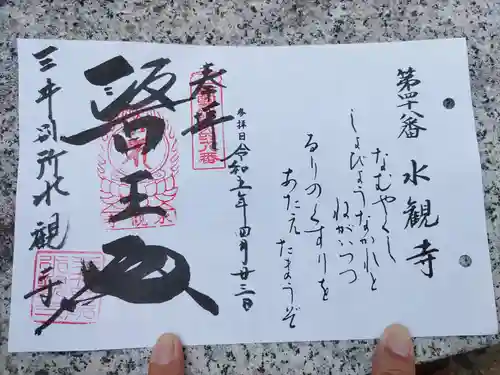 第四十八番 水観寺
なむやくし
しょびょうなかれと
ねがいつつ
るりのくすりを
あたえたまうぞ
奉拝
参拝日 令和五年四月廿三日
醫王殿
三井別所水観寺